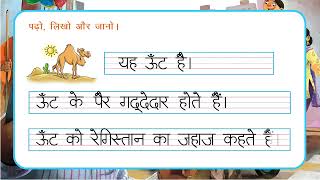 पढ़ो, लिखो और जानो।
यह ऊँट है।
ऊँट के पैर गद्देदार होते हैं।
ऊँट को रेगिस्तान का जहाज कहते हैं